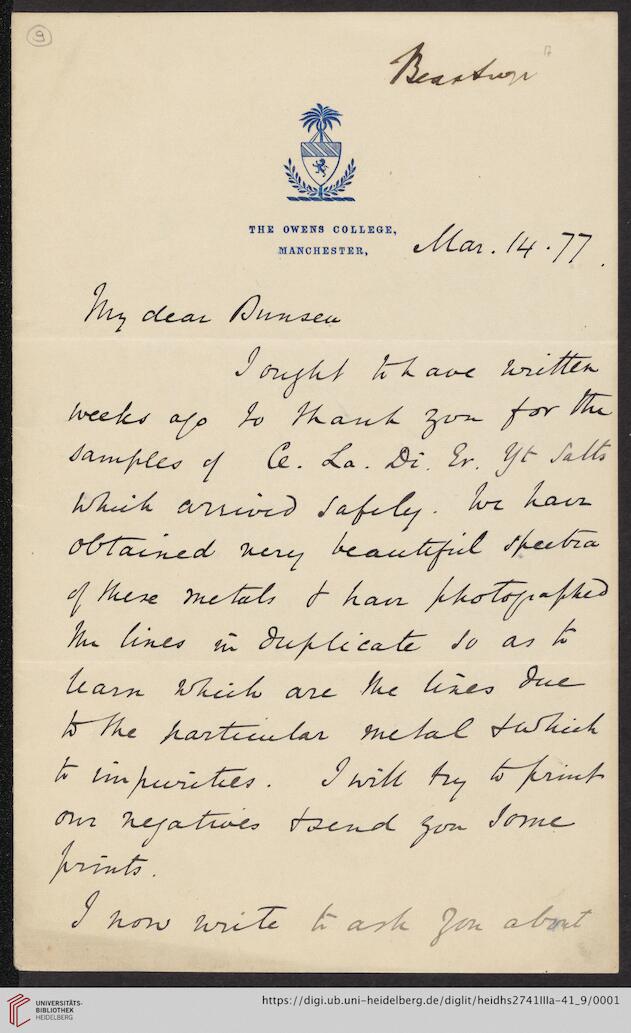 9
THE OWENS COLLEGE,
MANCHESTER,
Mar. 14. 77.
My dear Bunsen
I ought to have written
weeks ago to thank you for the
samples of Ce. La. Di. Er. Yt Salts
which arrived safely. We have
obtained very beautiful spectra
of these metals & have photographed
the lines in duplicate so as to
learn which are the lines due
to the particular metal & which
to impurities. I will try to print
our negatives & send you some
prints.
I now write to ask you about
UNIVERSITÄTS-
BIBLIOTHEK
HEIDELBERG
https://digi.ub.uni-heidelberg.de/diglit/heidhs2741IIIa-41_9/0001